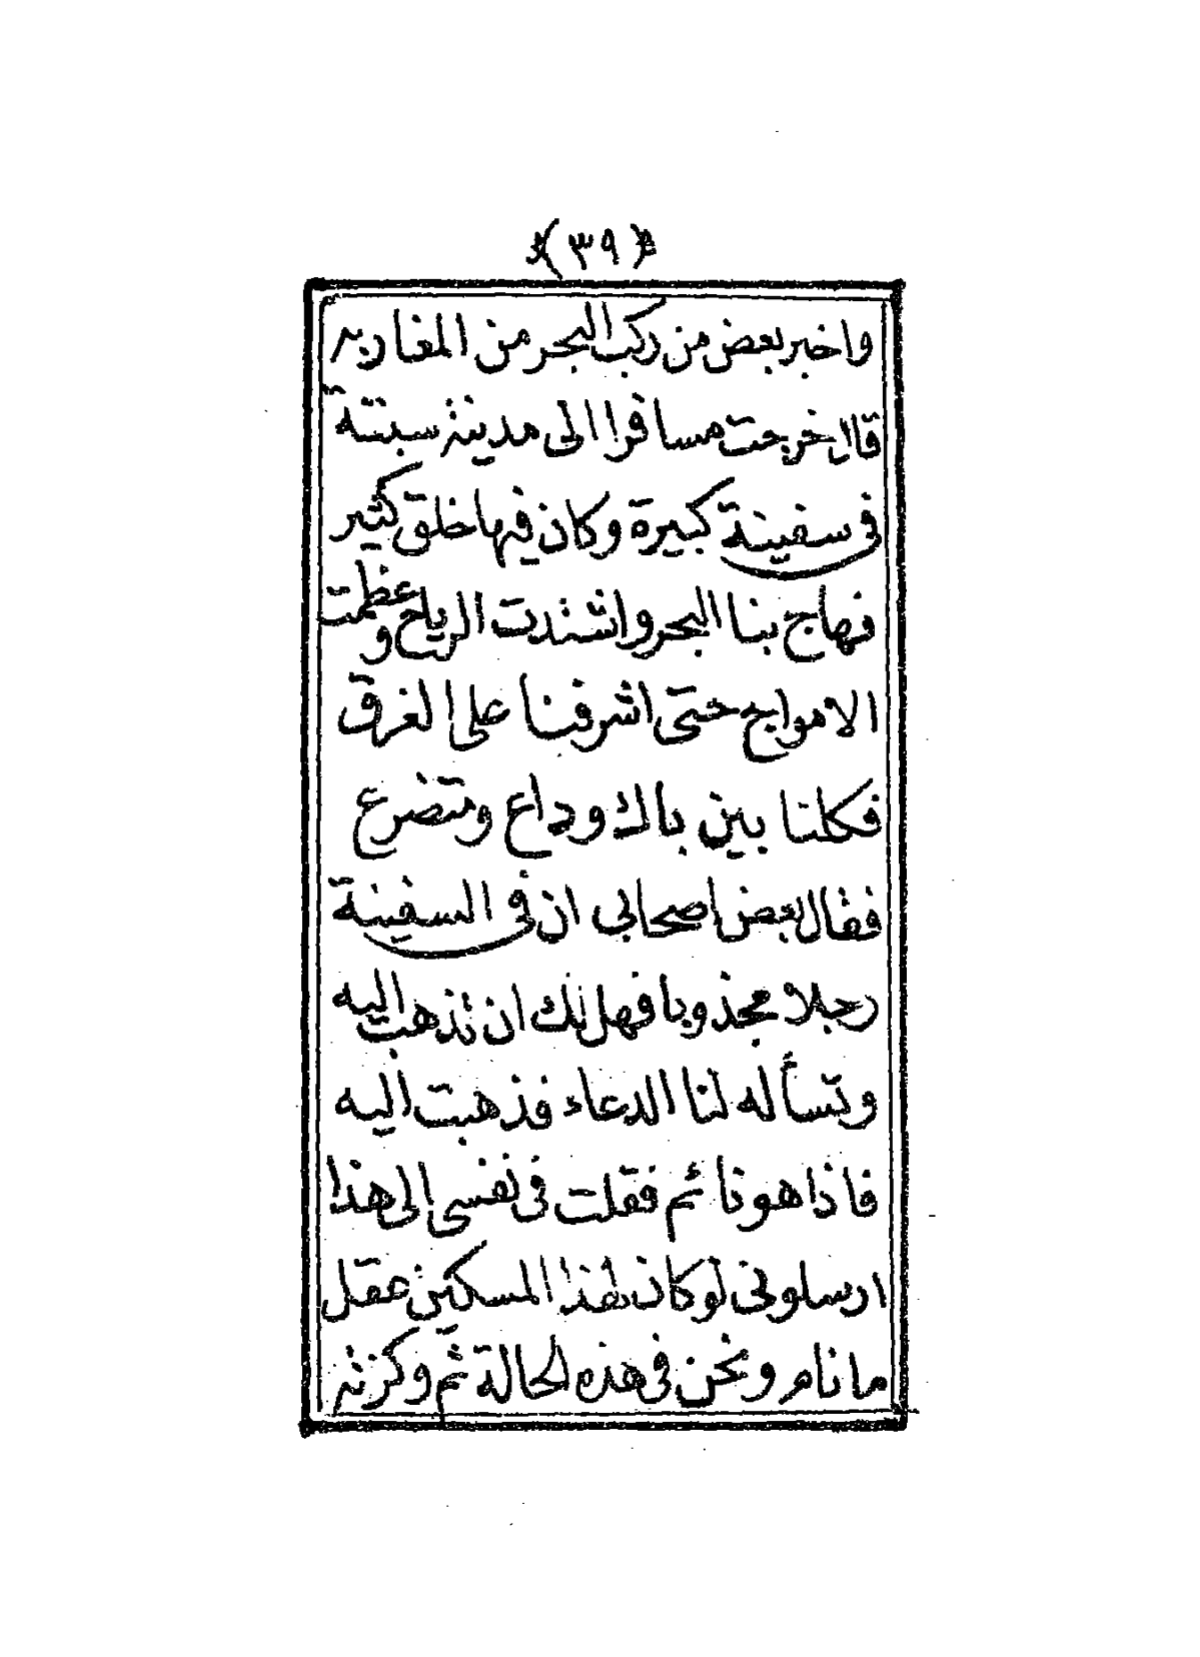 (٣٩)
واخبر بعض من ركب البحر من المغاربه
قال خرجت مسافرا الى مدينة سبتة
فى سفينة كبيرة وكان فيها خلق كثير
فهاج بنا البحر واشتدت الرياح وعظمت
الامواج حتى اشرفنا على الغرق
فكلنا بين باك وداع ومتضرع
فقال بعض اصحابي ان فى السفينة
رجلا مجذوبا فهل لك ان تذهب اليه
وتسأله لنا الدعاء فذهبت اليه
فاذا هو نائم فقلت فى نفسى الى هذا
ارسلونى لو كان لهذا المسكين عقل
ما نام ونحن فى هذه الحالة ثم وكزته